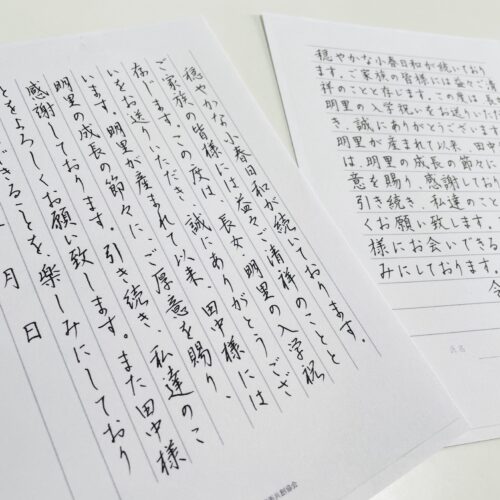 穏やかな小春日和が続いております。
ご家族の皆様には、益々ご清祥のことと
存じます。この度は、長女 明里の入学祝
いをお送りいただき、誠にありがとうござ
います。明里が産まれて以来、田中様には
明里の成長の節々に、ご厚意を賜り、
感謝しております。引き続き、私達のこ
とをよろしくお願い致します。また田中様
できることを、楽しみにしており
月 日
協会
穏やかな小春日和が続いており
ます。ご家族の皆様には益々ご清
祥のことと存じます。この度は、長
明里の入学祝いをお送りいただ
き、誠にありがとうございます
明里が産まれて以来、田中
は、明里の成長の節々に
意を賜り、感謝しており
引き続き、私達のこと
くお願い致します。
様にお会いできる
みにしております。
氏名